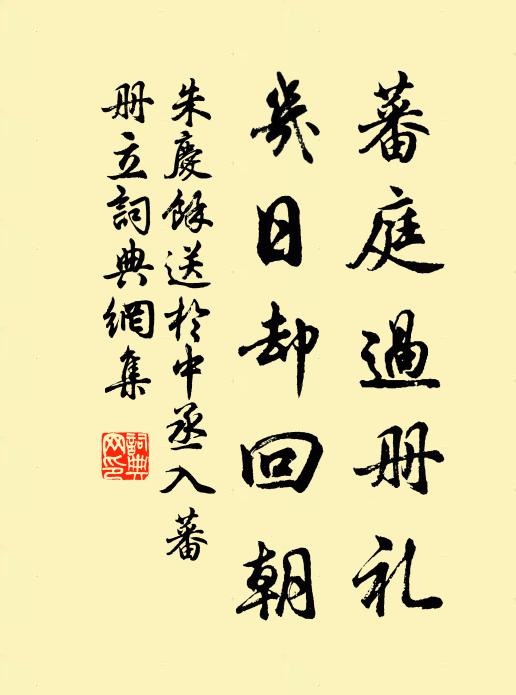 蕃庭過册礼
幾日却回朝
朱慶餘送於中丞入蕃
册立詞典網集
詞典网印